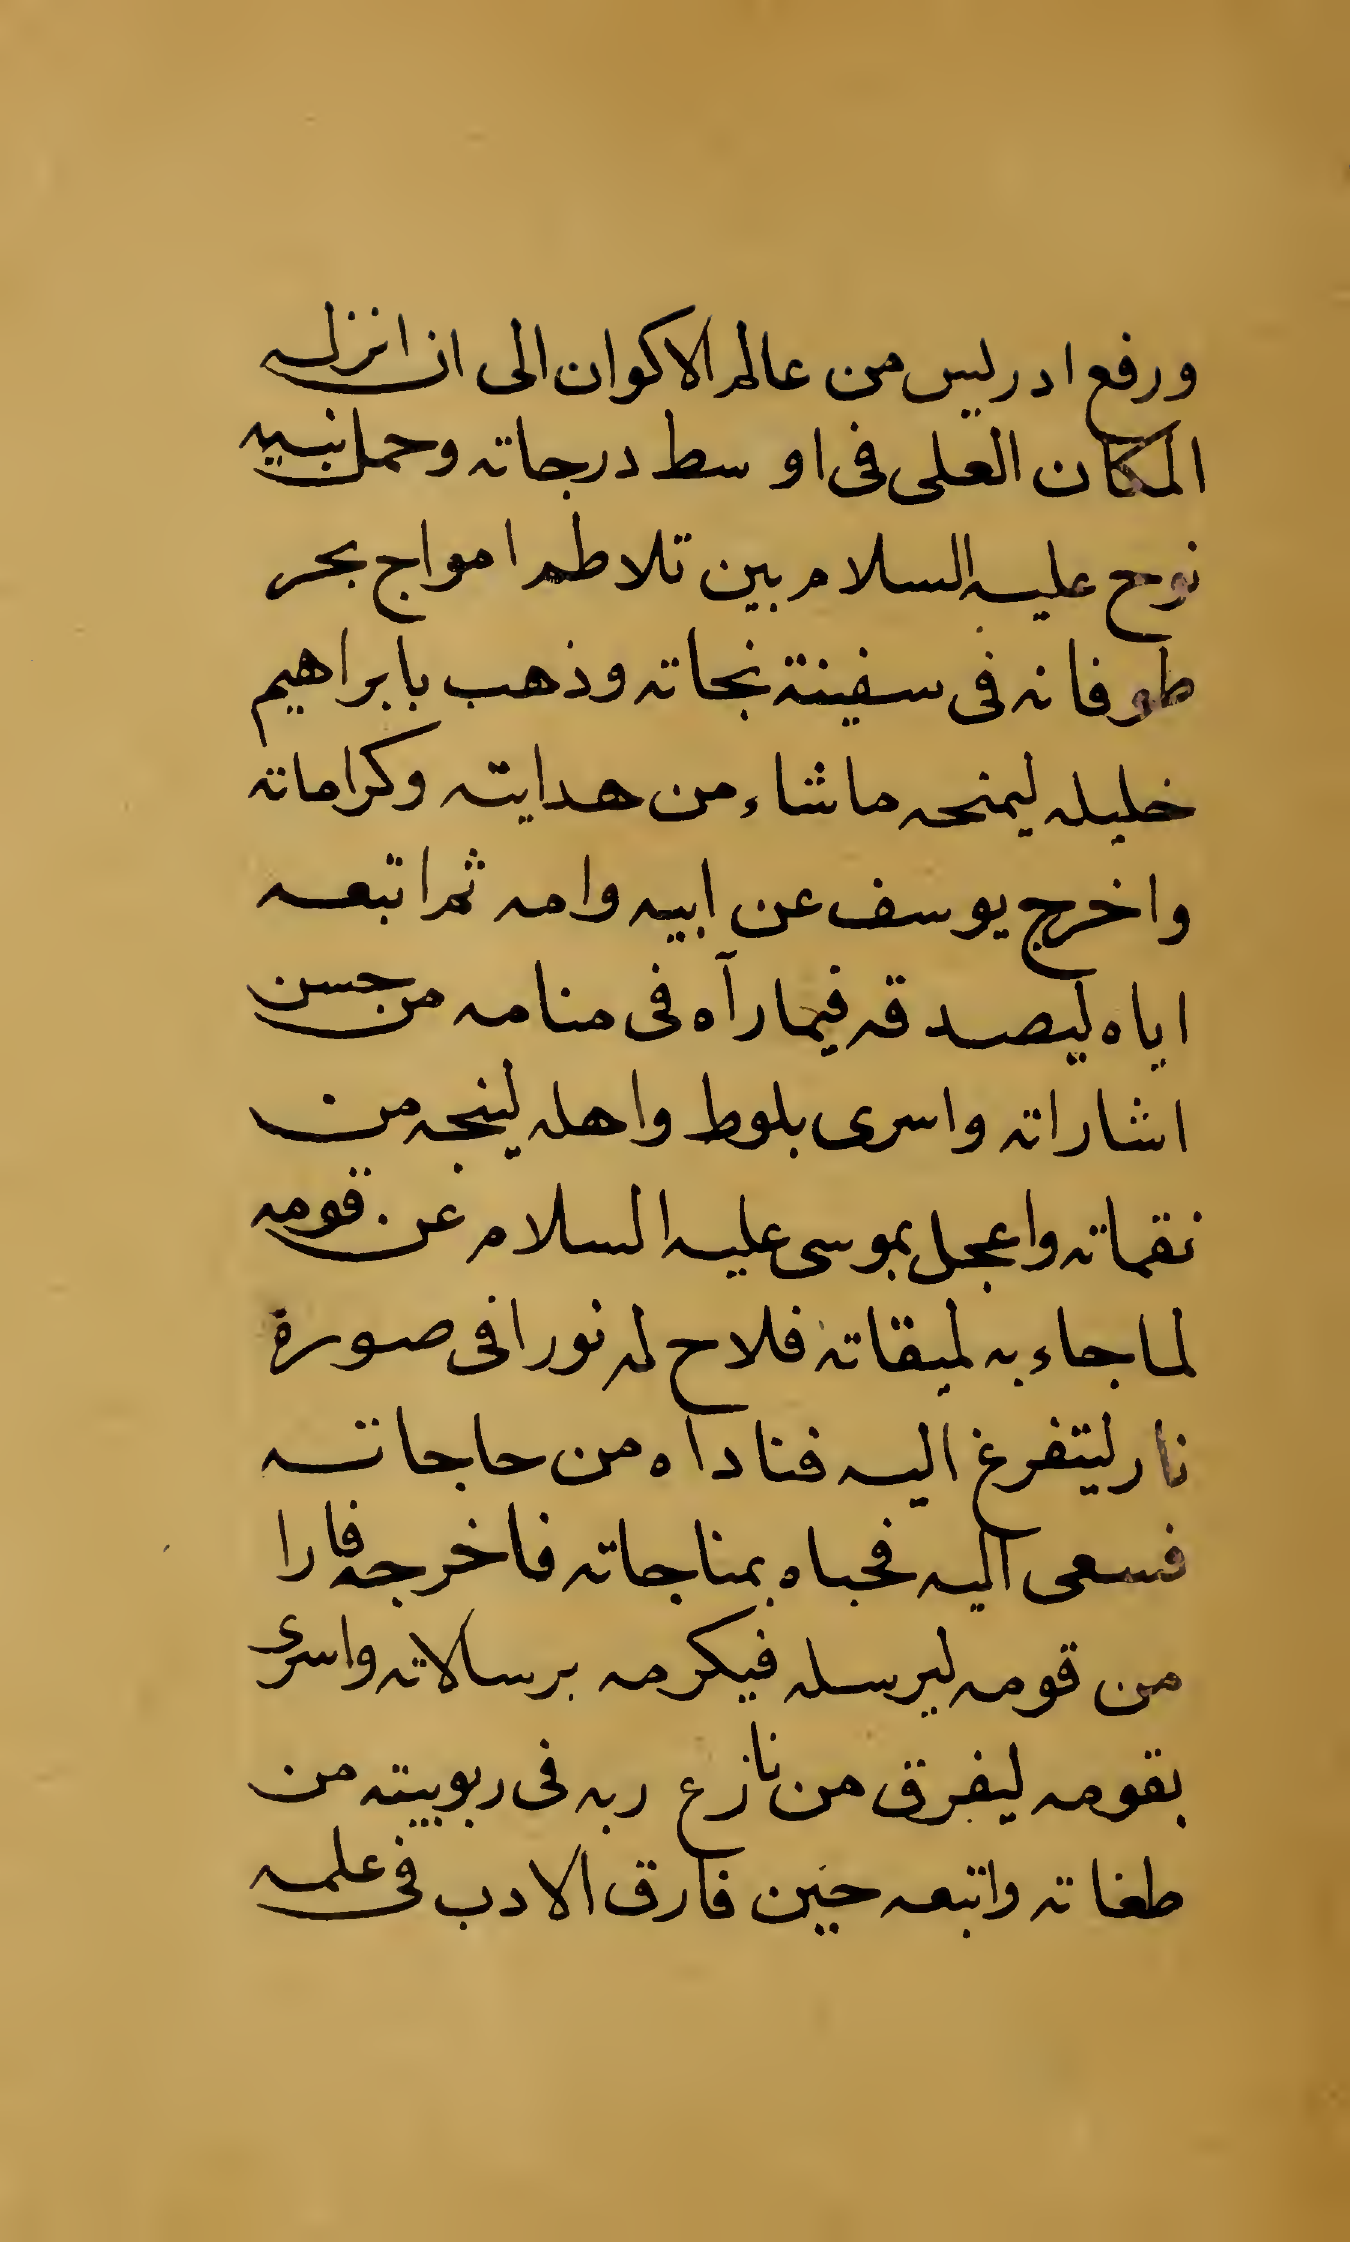 ورفع ادريس من عالم الاكوان الى ان انزله
المكان العلى فى اوسط درجاته وحمل نبيه
نوح عليه السلام بين تلاطم امواج بحر
طوفانه فى سفينة نجاته وذهب بابراهيم
خليله ليمنحه ماشاء من هدايته وكراماته
واخرج يوسف عن ابيه وامه ثم اتبعه
اياه ليصدقه فيما رآه فى منامه من حسن
اشاراته واسرى بلوط واهله لينجه من
نقماته واعجل بموسى عليه السلام عن قومه
لما جاء به لميقاته فلاح له نورا فى صورة
نار ليتفرغ اليه فناداه من حاجاته
فسعى اليه فحباه بمناجاته فاخرجه فارا
من قومه ليرسله فيكرمه برسالاته واسرى
بقومه ليفرق من نازع ربه فى ربوبيته من
طغاته واتبعه حين فارق الادب فى علمه